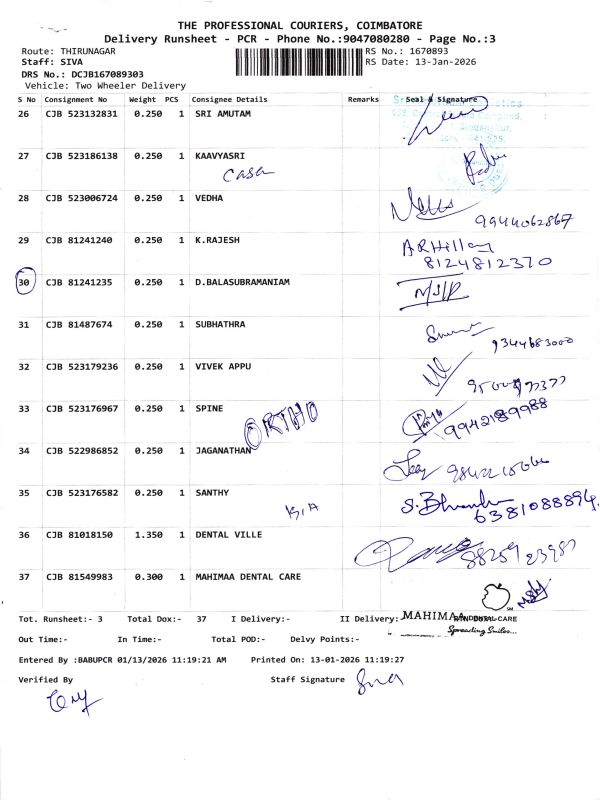 THE PROFESSIONAL COURIERS, COIMBATORE
Delivery Runsheet - PCR - Phone No.:9047080280 - Page No.:3
Route: THIRUNAGAR RS No.: 1670893
Staff: SIVA RS Date: 13-Jan-2026
DRS No.: DCJB167089303
Vehicle: Two Wheeler Delivery
S No Consignment No Weight PCS Consignee Details Remarks Seal & Signature
26 CJB 523132831 0.250 1 SRI AMUTAM
27 CJB 523186138 0.250 1 KAAVYASRI
casa
28 CJB 523006724 0.250 1 VEDHA
9944062867
29 CJB 81241240 0.250 1 K.RAJESH
8124812370
30 CJB 81241235 0.250 1 D.BALASUBRAMANIAM
31 CJB 81487674 0.250 1 SUBHATHRA
9344683000
32 CJB 523179236 0.250 1 VIVEK APPU
33 CJB 523176967 0.250 1 SPINE
ORTHO
9942189988
34 CJB 522986852 0.250 1 JAGANATHAN
35 CJB 523176582 0.250 1 SANTHY
6381088894
36 CJB 81018150 1.350 1 DENTAL VILLE
37 CJB 81549983 0.300 1 MAHIMAA DENTAL CARE
Tot. Runsheet:- 3 Total Dox:- 37 I Delivery:- II Delivery:- MAHIMAA DENTAL CARE
Spreading Smiles...
Out Time:- In Time:- Total POD:- Delvy Points:-
Entered By :BABUPCR 01/13/2026 11:19:21 AM Printed On: 13-01-2026 11:19:27
Verified By Staff Signature